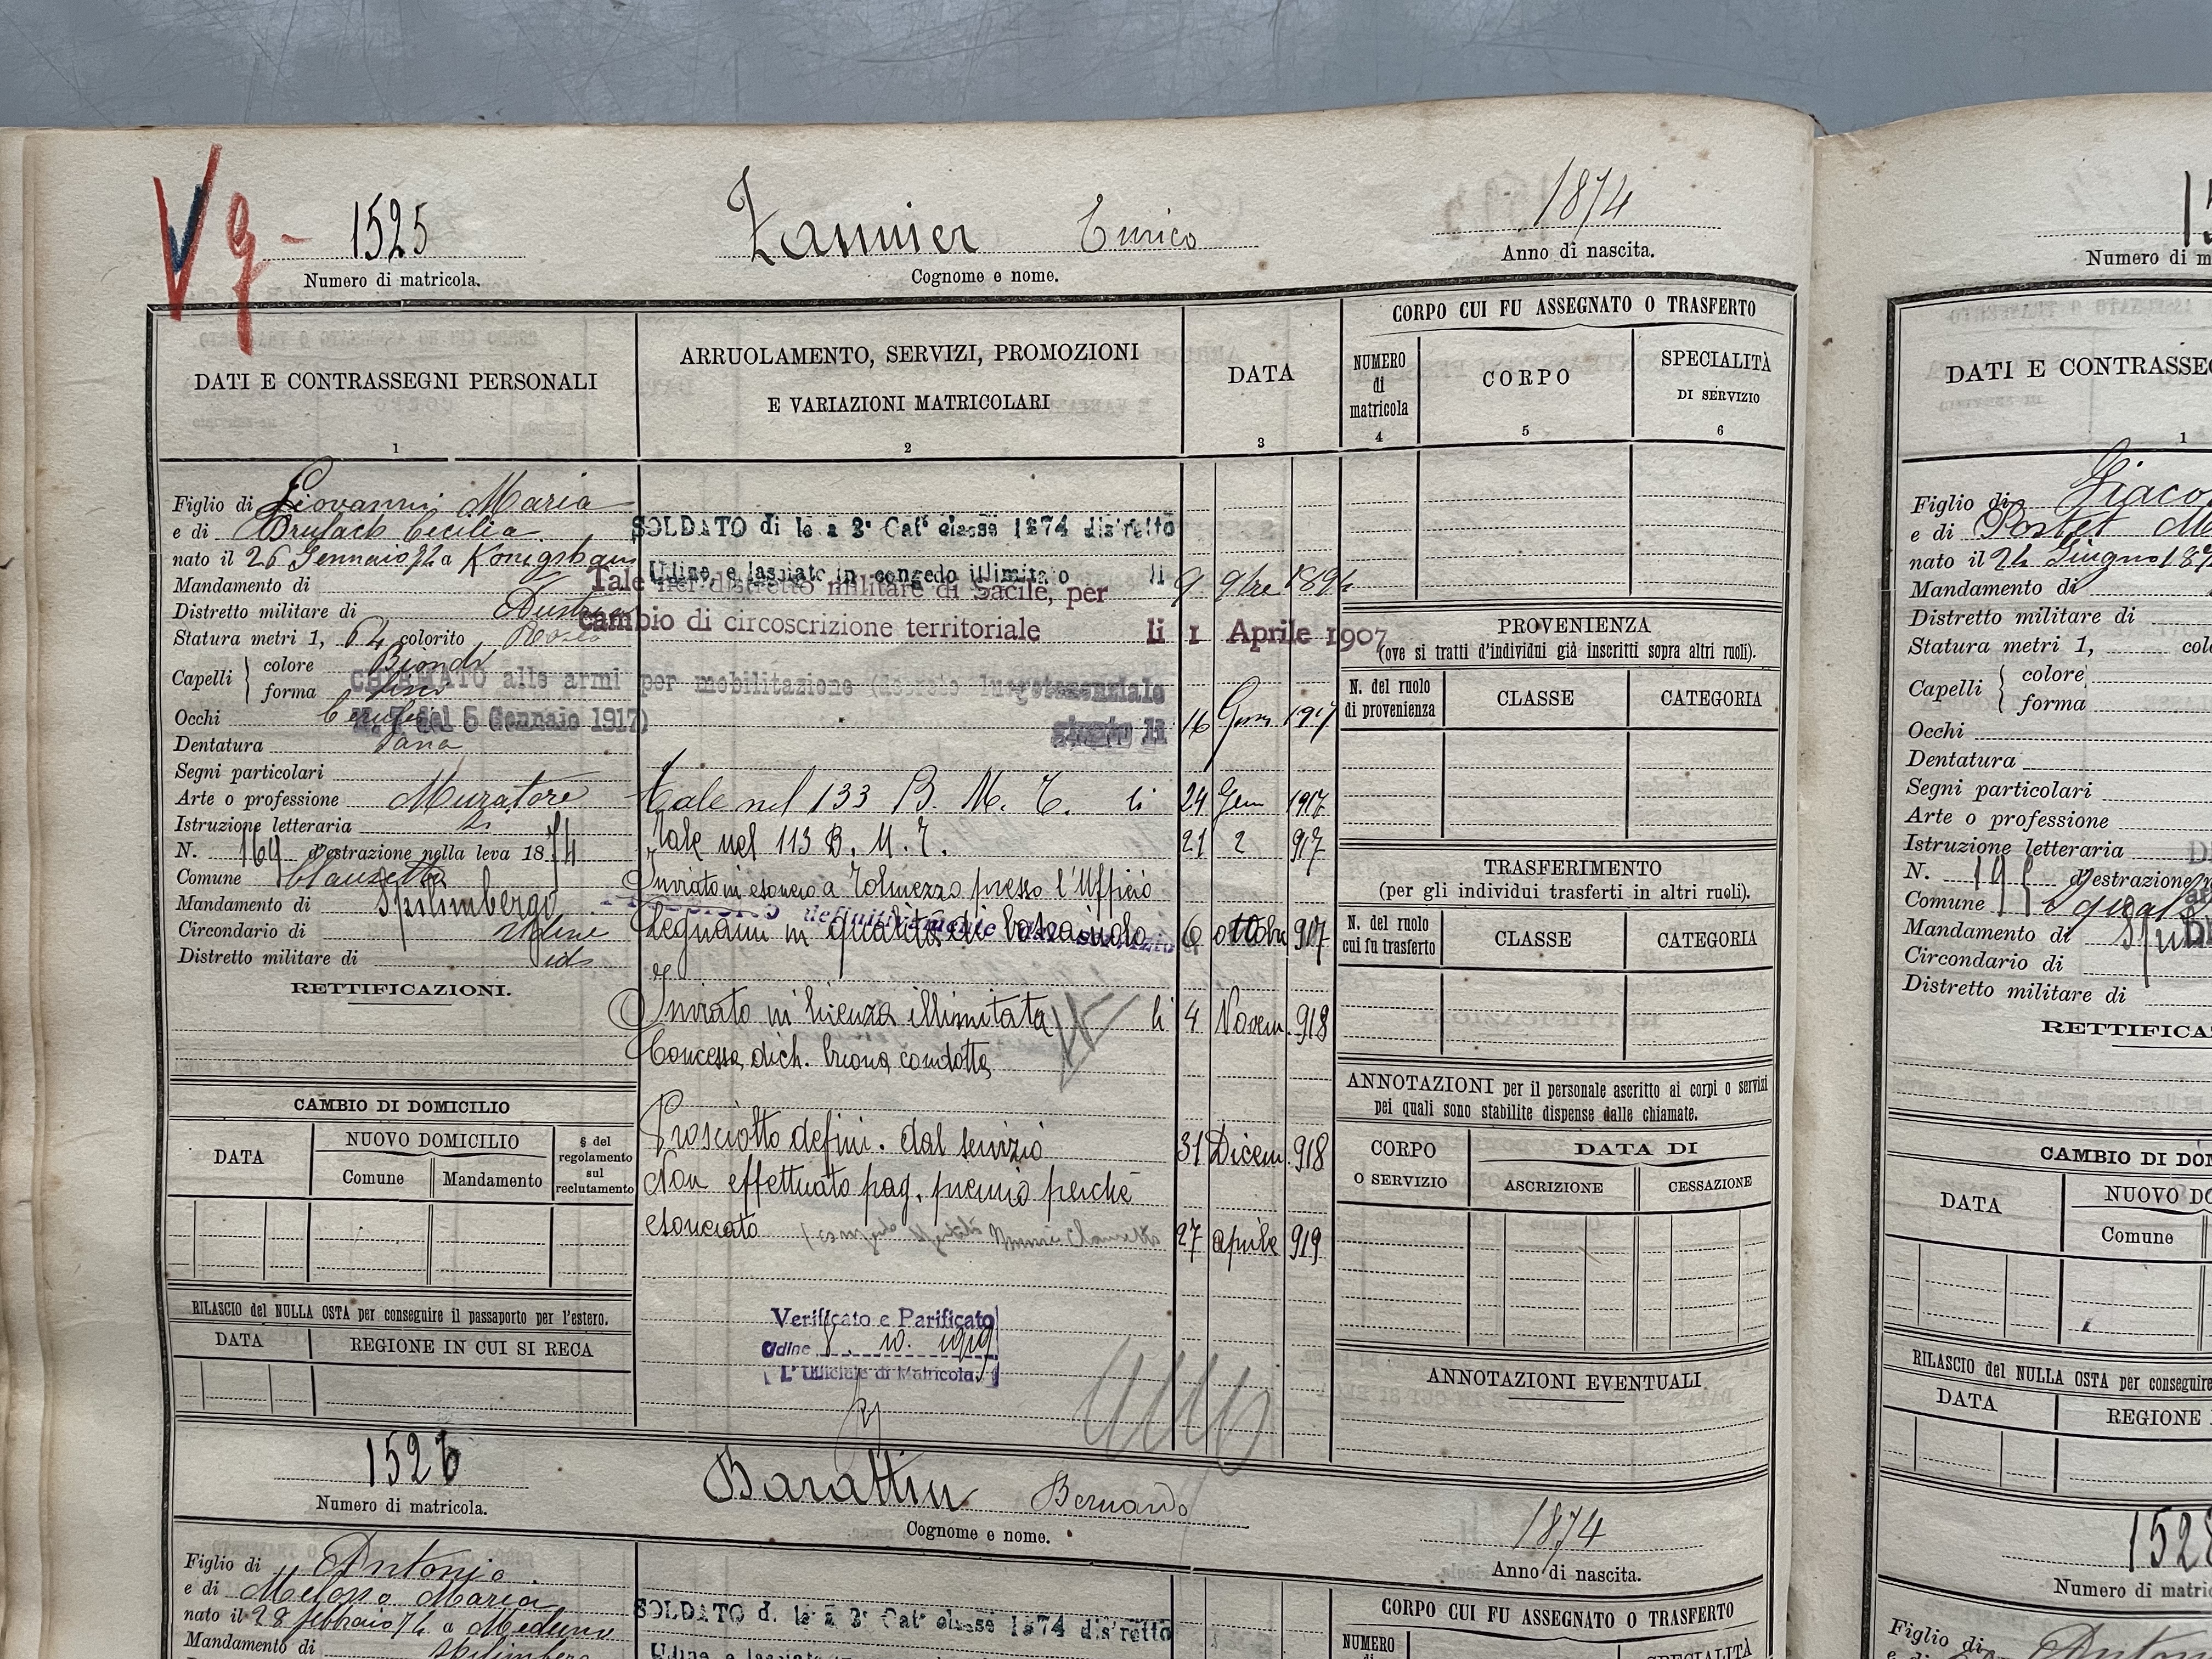 Vg -
1525
Numero di matricola.
Zannier Enrico
Cognome e nome.
1874
Anno di nascita.
DATI E CONTRASSEGNI PERSONALI
1
Figlio di Giovanni Maria
e di Brulach Cecilia
nato il 26 Gennaio 74 a Konigsham
Mandamento di
Distretto militare di Austria
Statura metri 1, 64 colorito Roseo
Capelli
colore Biondi
forma lisci
Occhi Cerulei
Dentatura Sana
Segni particolari
Arte o professione Muratore
Istruzione letteraria Si
N. 169 d'estrazione nella leva 1874
Comune Clauzetto
Mandamento di Spilimbergo
Circondario di Udine
Distretto militare di id
RETTIFICAZIONI.
CAMBIO DI DOMICILIO
DATA
NUOVO DOMICILIO
Comune
Mandamento
§ del
regolamento
sul
reclutamento
RILASCIO del NULLA OSTA per conseguire il passaporto per l'estero.
DATA
REGIONE IN CUI SI RECA
ARRUOLAMENTO, SERVIZI, PROMOZIONI
E VARIAZIONI MATRICOLARI
2
DATA
3
SOLDATO di le a 3ª Catª classe 1874 distretto
Udine e lasciato in congedo illimitato li 9 9bre 1894
Tale nel distretto militare di Sacile, per
cambio di circoscrizione territoriale li 1 Aprile 1907
CHIAMATO alle armi per mobilitazione (decreto luogotenenziale
N. 7 del 5 Gennaio 1917)
giunto li 16 Genn 1917
Tale nel 133 B. M. T. li 24 Gen 1917
Tale nel 113 B. M. T. 21 2 917
Inviato in esonero a Tolmezzo presso l'Ufficio
Legnami in qualità di boscaiuolo 6 ottobre 917
definitivamente dal servizio
Inviato in licenza illimitata li 4 Novem. 918
Concessa dich. buona condotta
Prosciolto defini. dal servizio 31 Dicem. 918
Non effettuato pag. premio perchè
esonerato 27 aprile 919
Verificato e Parificato
Udine 8. 10. 1919
L'Ufficiale di Matricola
CORPO CUI FU ASSEGNATO O TRASFERTO
NUMERO
di
matricola
4
CORPO
5
SPECIALITÀ
DI SERVIZIO
6
PROVENIENZA
(ove si tratti d'individui già inscritti sopra altri ruoli).
N. del ruolo
di provenienza
CLASSE
CATEGORIA
TRASFERIMENTO
(per gli individui trasferti in altri ruoli).
N. del ruolo
cui fu trasferto
CLASSE
CATEGORIA
ANNOTAZIONI per il personale ascritto ai corpi o servizi
pei quali sono stabilite dispense dalle chiamate.
CORPO
O SERVIZIO
DATA DI
ASCRIZIONE
CESSAZIONE
ANNOTAZIONI EVENTUALI
1526
Numero di matricola.
Barattin Bernardo
Cognome e nome.
1874
Anno di nascita.
Figlio di Antonio
e di Melosso Maria
nato il 28 febbraio 74 a Meduno
Mandamento di Spilimbergo
SOLDATO di le a 3ª Catª classe 1874 distretto
CORPO CUI FU ASSEGNATO O TRASFERTO
NUMERO
SPECIALITÀ
Numero di m
DATI E CONTRASSEG
1
Figlio di Giaco
e di Postet M
nato il 24 Giugno 187
Mandamento di
Distretto militare di
Statura metri 1, colo
Capelli
colore
forma
Occhi
Dentatura
Segni particolari
Arte o professione
Istruzione letteraria
N. 195 d'estrazione
Comune Sequals
Mandamento di Spil
Circondario di
Distretto militare di
RETTIFICA
CAMBIO DI DOM
DATA
NUOVO DO
Comune
RILASCIO del NULLA OSTA per conseguire
DATA
REGIONE
1528
Numero di matric
Figlio di Anton